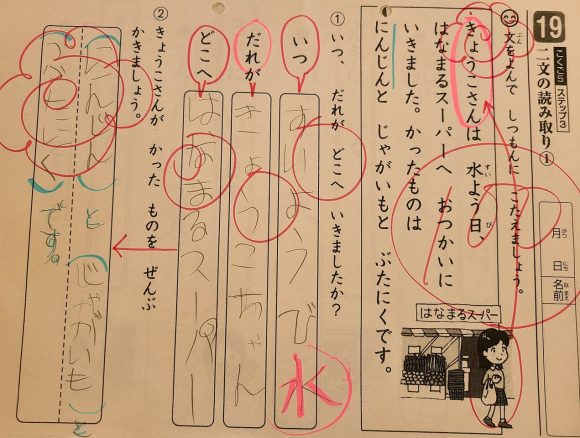 19
こくご5 ステップ3
二文の読み取り①
月 日 名前
がつ にち なまえ
文をよんで しつもんに こたえましょう。
ぶん
きょうこさんは 水よう日、
すい び
はなまるスーパーへ おつかいに
いきました。かったものは
にんじんと じゃがいもと ぶたにくです。
はなまるスーパー
① いつ、だれが どこへ いきましたか?
いつ
すいようび
水
だれが
きょうこちゃん
どこへ
はなまるスーパー
② きょうこさんが かった ものを ぜんぶ
かきましょう。
にんじん と じゃがいも と
ぶたにく です。